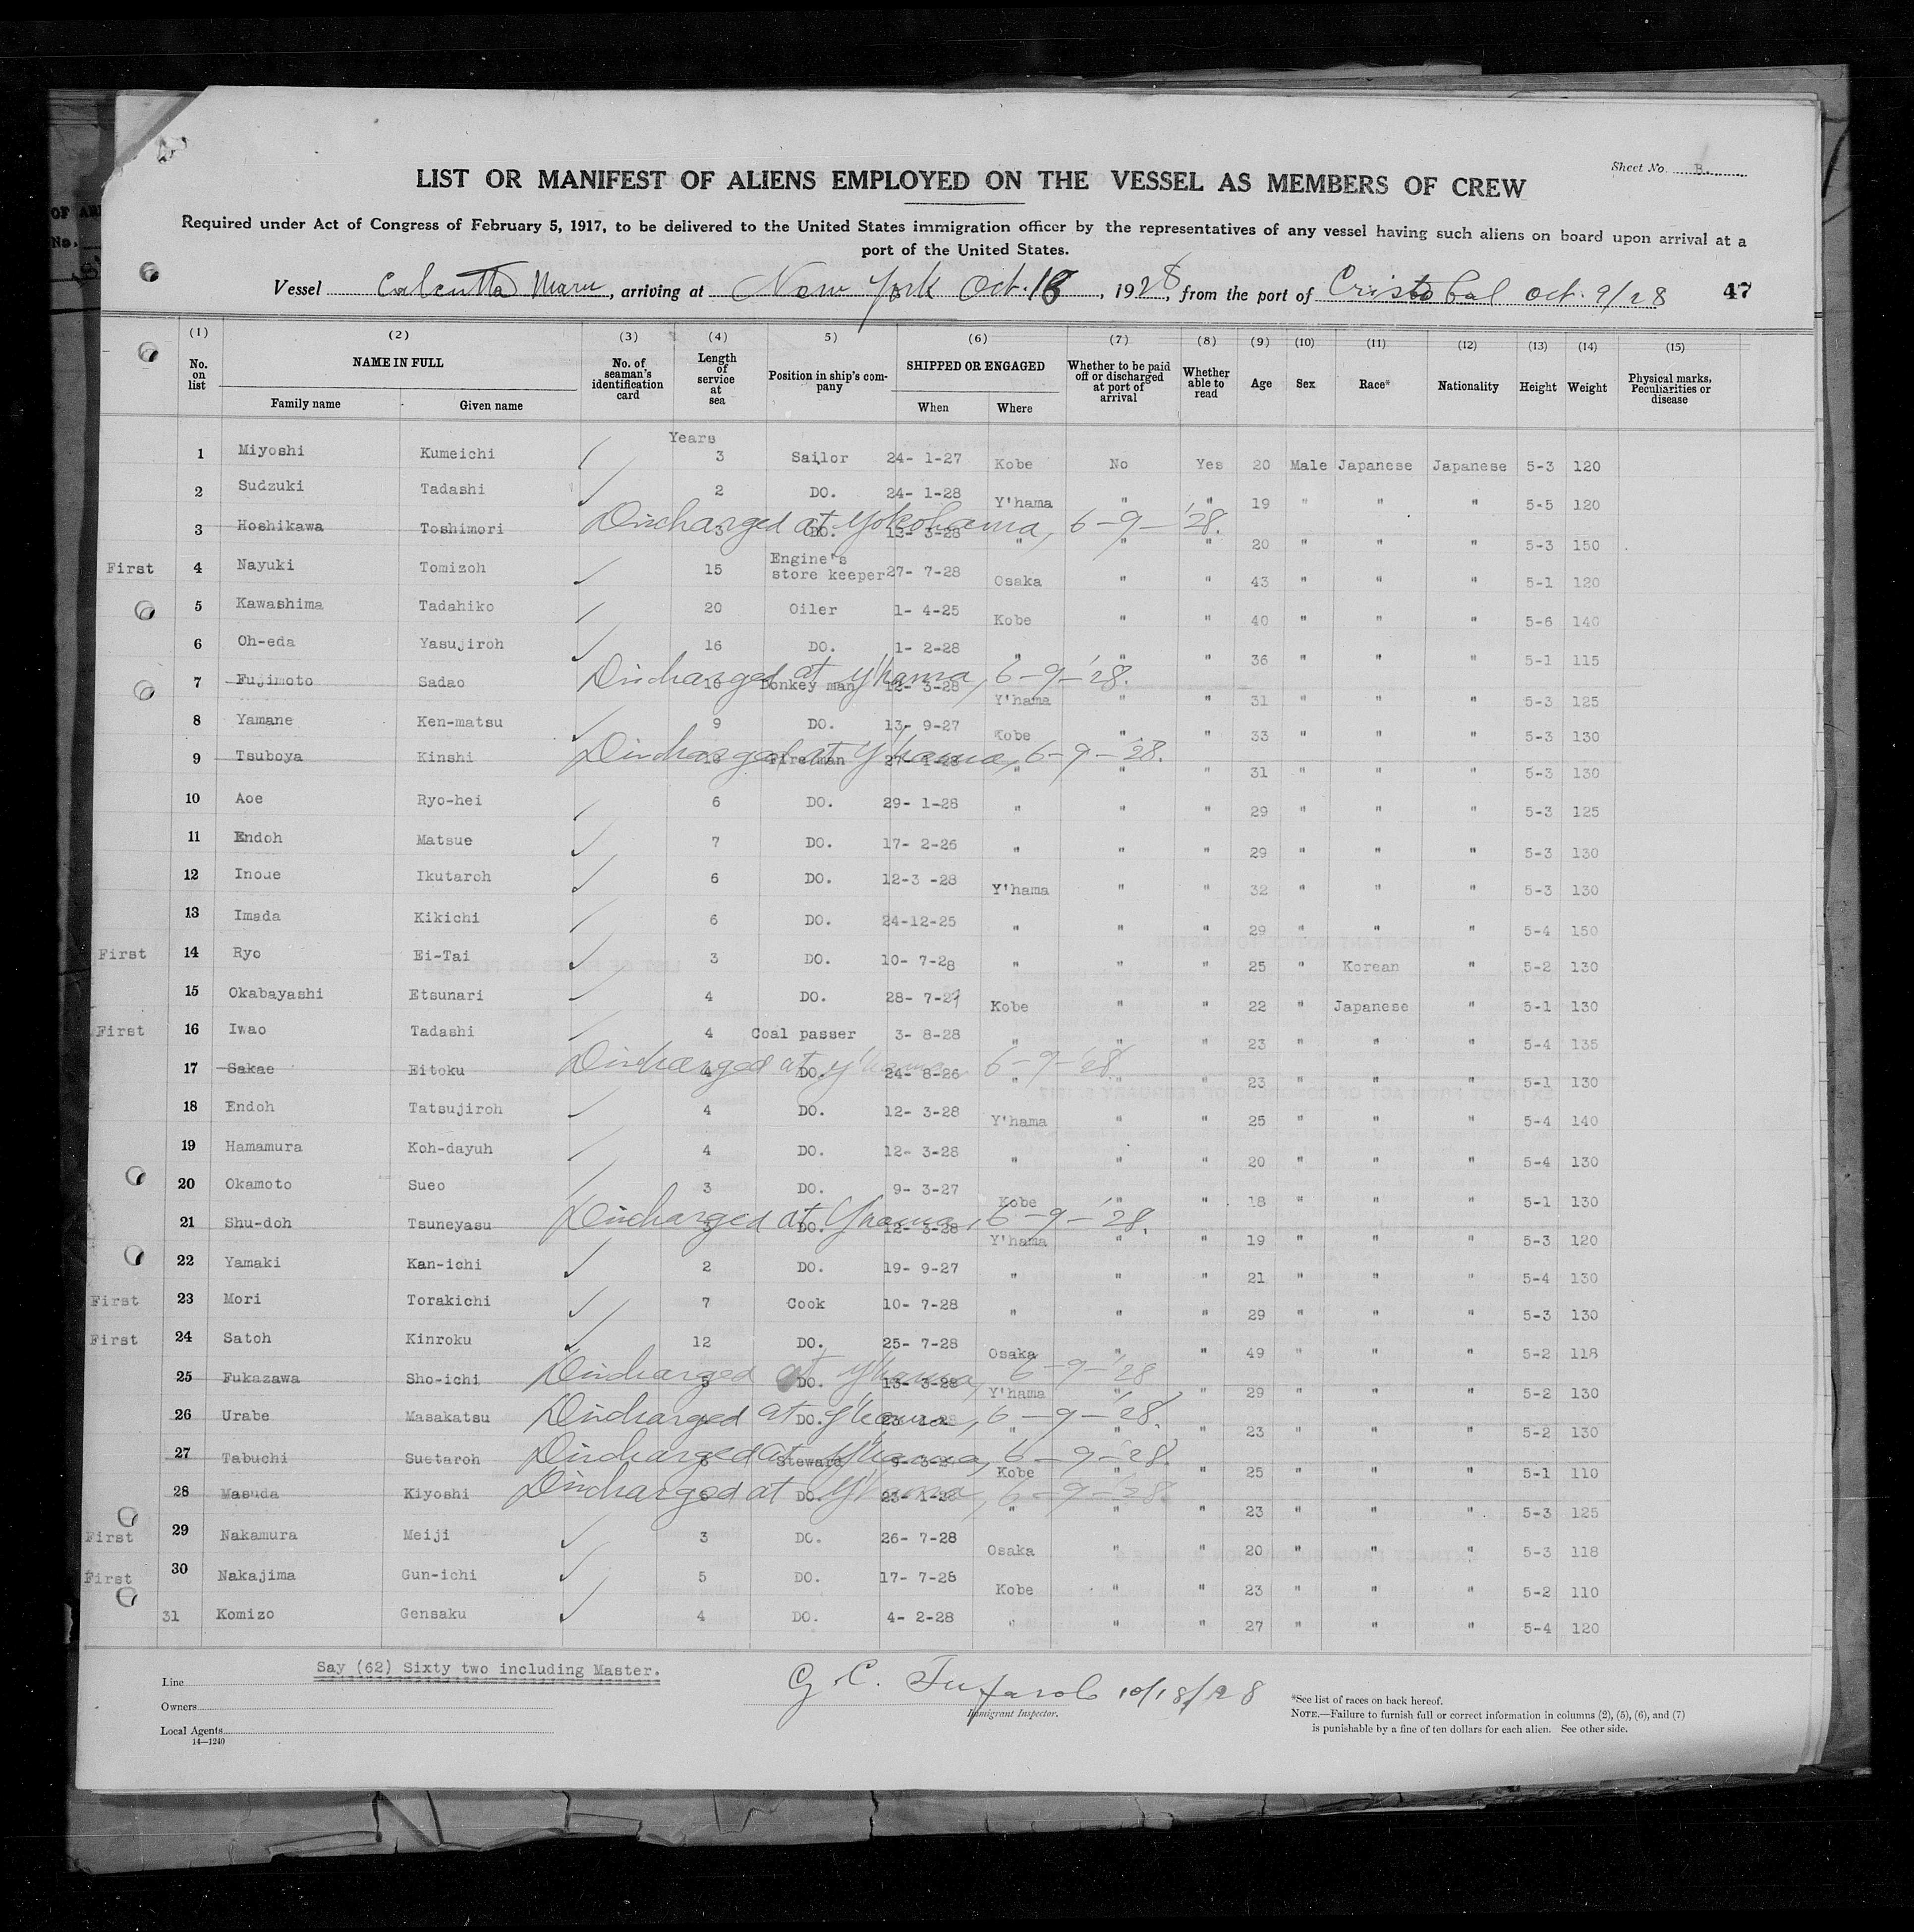 Sheet No. B.
LIST OR MANIFEST OF ALIENS EMPLOYED ON THE VESSEL AS MEMBERS OF CREW
Required under Act of Congress of February 5, 1917, to be delivered to the United States immigration officer by the representatives of any vessel having such aliens on board upon arrival at a
port of the United States.
Vessel Calcutta Maru, arriving at New York Oct. 18, 1928, from the port of Cristobal Oct. 9/28 47
(1) (2) (3) (4) 5) (6) (7) (8) (9) (10) (11) (12) (13) (14) (15)
No. on list NAME IN FULL Family name Given name No. of seaman's identification card Length of service at sea Position in ship's company SHIPPED OR ENGAGED When Where Whether to be paid off or discharged at port of arrival Whether able to read Age Sex Race* Nationality Height Weight Physical marks, Peculiarities or disease
Years
1 Miyoshi Kumeichi ✓ 3 Sailor 24- 1-27 Kobe No Yes 20 Male Japanese Japanese 5-3 120
2 Sudzuki Tadashi ✓ 2 DO. 24- 1-28 Y'hama " " 19 " " " 5-5 120
3 Hoshikawa Toshimori Discharged at Yokohama, 6-9-'28. 3 DO. 12- 3-28 " " " 20 " " " 5-3 150
First 4 Nayuki Tomizoh ✓ 15 Engine's store keeper 27- 7-28 Osaka " " 43 " " " 5-1 120
5 Kawashima Tadahiko ✓ 20 Oiler 1- 4-25 Kobe " " 40 " " " 5-6 140
6 Oh-eda Yasujiroh ✓ 16 DO. 1- 2-28 " " " 36 " " " 5-1 115
7 Fujimoto Sadao Discharged at Y'hama, 6-9-'28. 10 Donkey man 12- 3-28 Y'hama " " 31 " " " 5-3 125
8 Yamane Ken-matsu ✓ 9 DO. 13- 9-27 Kobe " " 33 " " " 5-3 130
9 Tsuboya Kinshi Discharged at Y'hama, 6-9-'28. Fireman 27- 1-28 " " " 31 " " " 5-3 130
10 Aoe Ryo-hei ✓ 6 DO. 29- 1-28 " " " 29 " " " 5-3 125
11 Endoh Matsue ✓ 7 DO. 17- 2-26 " " " 29 " " " 5-3 130
12 Inoue Ikutaroh ✓ 6 DO. 12-3 -28 Y'hama " " 32 " " " 5-3 130
13 Imada Kikichi ✓ 6 DO. 24-12-25 " " " 29 " " " 5-4 150
First 14 Ryo Ei-Tai ✓ 3 DO. 10- 7-28 " " " 25 " Korean " 5-2 130
15 Okabayashi Etsunari ✓ 4 DO. 28- 7-27 Kobe " " 22 " Japanese " 5-1 130
First 16 Iwao Tadashi ✓ 4 Coal passer 3- 8-28 " " " 23 " " " 5-4 135
17 Sakae Eitoku Discharged at Y'hama 6-9-'28 4 DO. 24- 8-26 " " " 23 " " " 5-1 130
18 Endoh Tatsujiroh ✓ 4 DO. 12- 3-28 Y'hama " " 25 " " " 5-4 140
19 Hamamura Koh-dayuh ✓ 4 DO. 12- 3-28 " " " 20 " " " 5-4 130
20 Okamoto Sueo ✓ 3 DO. 9- 3-27 Kobe " " 18 " " " 5-1 130
21 Shu-doh Tsuneyasu Discharged at Y'hama, 6-9-'28. 3 DO. 12- 3-28 Y'hama " " 19 " " " 5-3 120
22 Yamaki Kan-ichi ✓ 2 DO. 19- 9-27 " " " 21 " " " 5-4 130
First 23 Mori Torakichi ✓ 7 Cook 10- 7-28 " " " 29 " " " 5-3 130
First 24 Satoh Kinroku ✓ 12 DO. 25- 7-28 Osaka " " 49 " " " 5-2 118
25 Fukazawa Sho-ichi Discharged at Y'hama, 6-9-'28 5 DO. 13- 3-28 Y'hama " " 29 " " " 5-2 130
26 Urabe Masakatsu Discharged at Y'hama, 6-9-'28. DO. 23- 1-28 " " " 23 " " " 5-2 130
27 Tabuchi Suetaroh Discharged at Y'hama, 6-9-'28. 6 Steward 9- 3-2 Kobe " " 25 " " " 5-1 110
28 Masuda Kiyoshi Discharged at Y'hama, 6-9-'28. DO. 23- 1-28 " " " 23 " " " 5-3 125
First 29 Nakamura Meiji ✓ 3 DO. 26- 7-28 Osaka " " 20 " " " 5-3 118
First 30 Nakajima Gun-ichi ✓ 5 DO. 17- 7-28 Kobe " " 23 " " " 5-2 110
31 Komizo Gensaku ✓ 4 DO. 4- 2-28 " " " 27 " " " 5-4 120
Say (62) Sixty two including Master.
Line
Owners
Local Agents
14—1240
G. C. 10/18/28
Immigrant Inspector.
*See list of races on back hereof.
NOTE.—Failure to furnish full or correct information in columns (2), (5), (6), and (7)
is punishable by a fine of ten dollars for each alien. See other side.